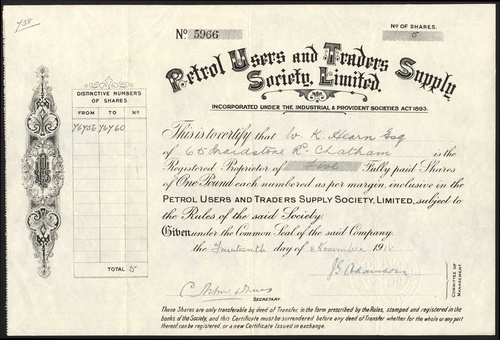 738
No 5966
No OF SHARES.
5
Petrol Users and Traders Supply
Society, Limited.
INCORPORATED UNDER THE INDUSTRIAL & PROVIDENT SOCIETIES ACT 1893.
DISTINCTIVE NUMBERS
OF SHARES
FROM TO
76456 76460
TOTAL 5
This is to certify that W K Hearn Esq
of 65 Maidstone Rd Chatham is the
Registered Proprietor of Five Fully paid Shares
of One Pound each numbered as per margin, inclusive in the
PETROL USERS AND TRADERS SUPPLY SOCIETY, LIMITED, subject to
the Rules of the said Society.
Given under the Common Seal of the said Company.
the Fourteenth day of November 19
COMMITTEE OF
MANAGEMENT
SECRETARY
These Shares are only transferable by deed of Transfer, in the form prescribed by the Rules, stamped and registered in the
books of the Society, and this Certificate must be surrendered before any deed of Transfer whether for the whole or any part
thereof, can be registered, or a new Certificate Issued in exchange.